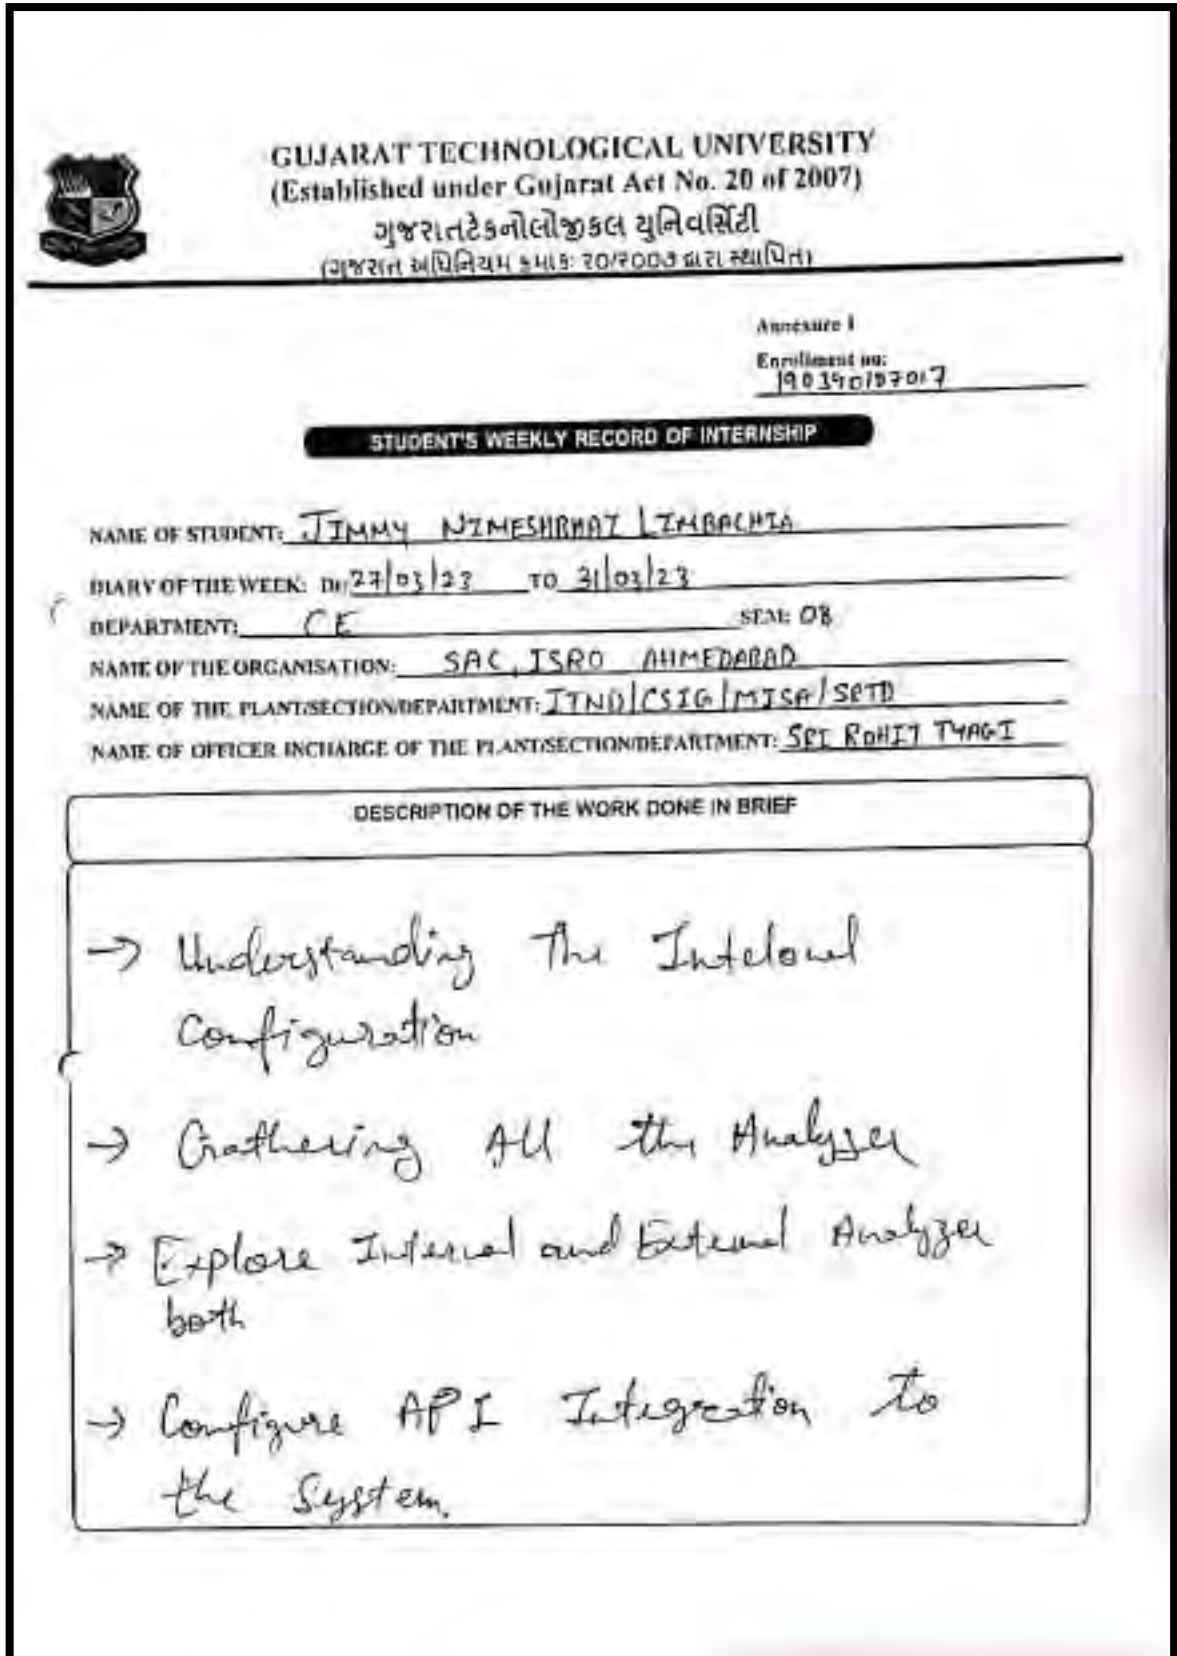 GUJARAT TECHNOLOGICAL UNIVERSITY
(Established under Gujarat Act No. 20 of 2007)
ગુજરાતટેકનોલોજીકલ યુનિવર્સિટી
(ગુજરાત અધિનિયમ ક્રમાંક: ૨૦/૨૦૦૭ દ્વારા સ્થાપિત)
Annexure 1
Enrollment no:
STUDENT'S WEEKLY RECORD OF INTERNSHIP
NAME OF STUDENT: JIMMY NIMESHBHAI LIMBACHIA
DIARY OF THE WEEK: Dt: 27/03/23 TO 31/03/23
DEPARTMENT: CE SEM: 08
NAME OF THE ORGANISATION: SAC, ISRO AHMEDABAD
NAME OF THE PLANT/SECTION/DEPARTMENT: ITND/CSIG/MISA/
NAME OF OFFICER INCHARGE OF THE PLANT/SECTION/DEPARTMENT: SRI ROHIT TYAGI
DESCRIPTION OF THE WORK DONE IN BRIEF
→ Understanding The Intelowl
Configuration
→ Grathering All the Analyzer
→ Explore Internal and External Analyzer
both
→ Configure API Integration to
the System.